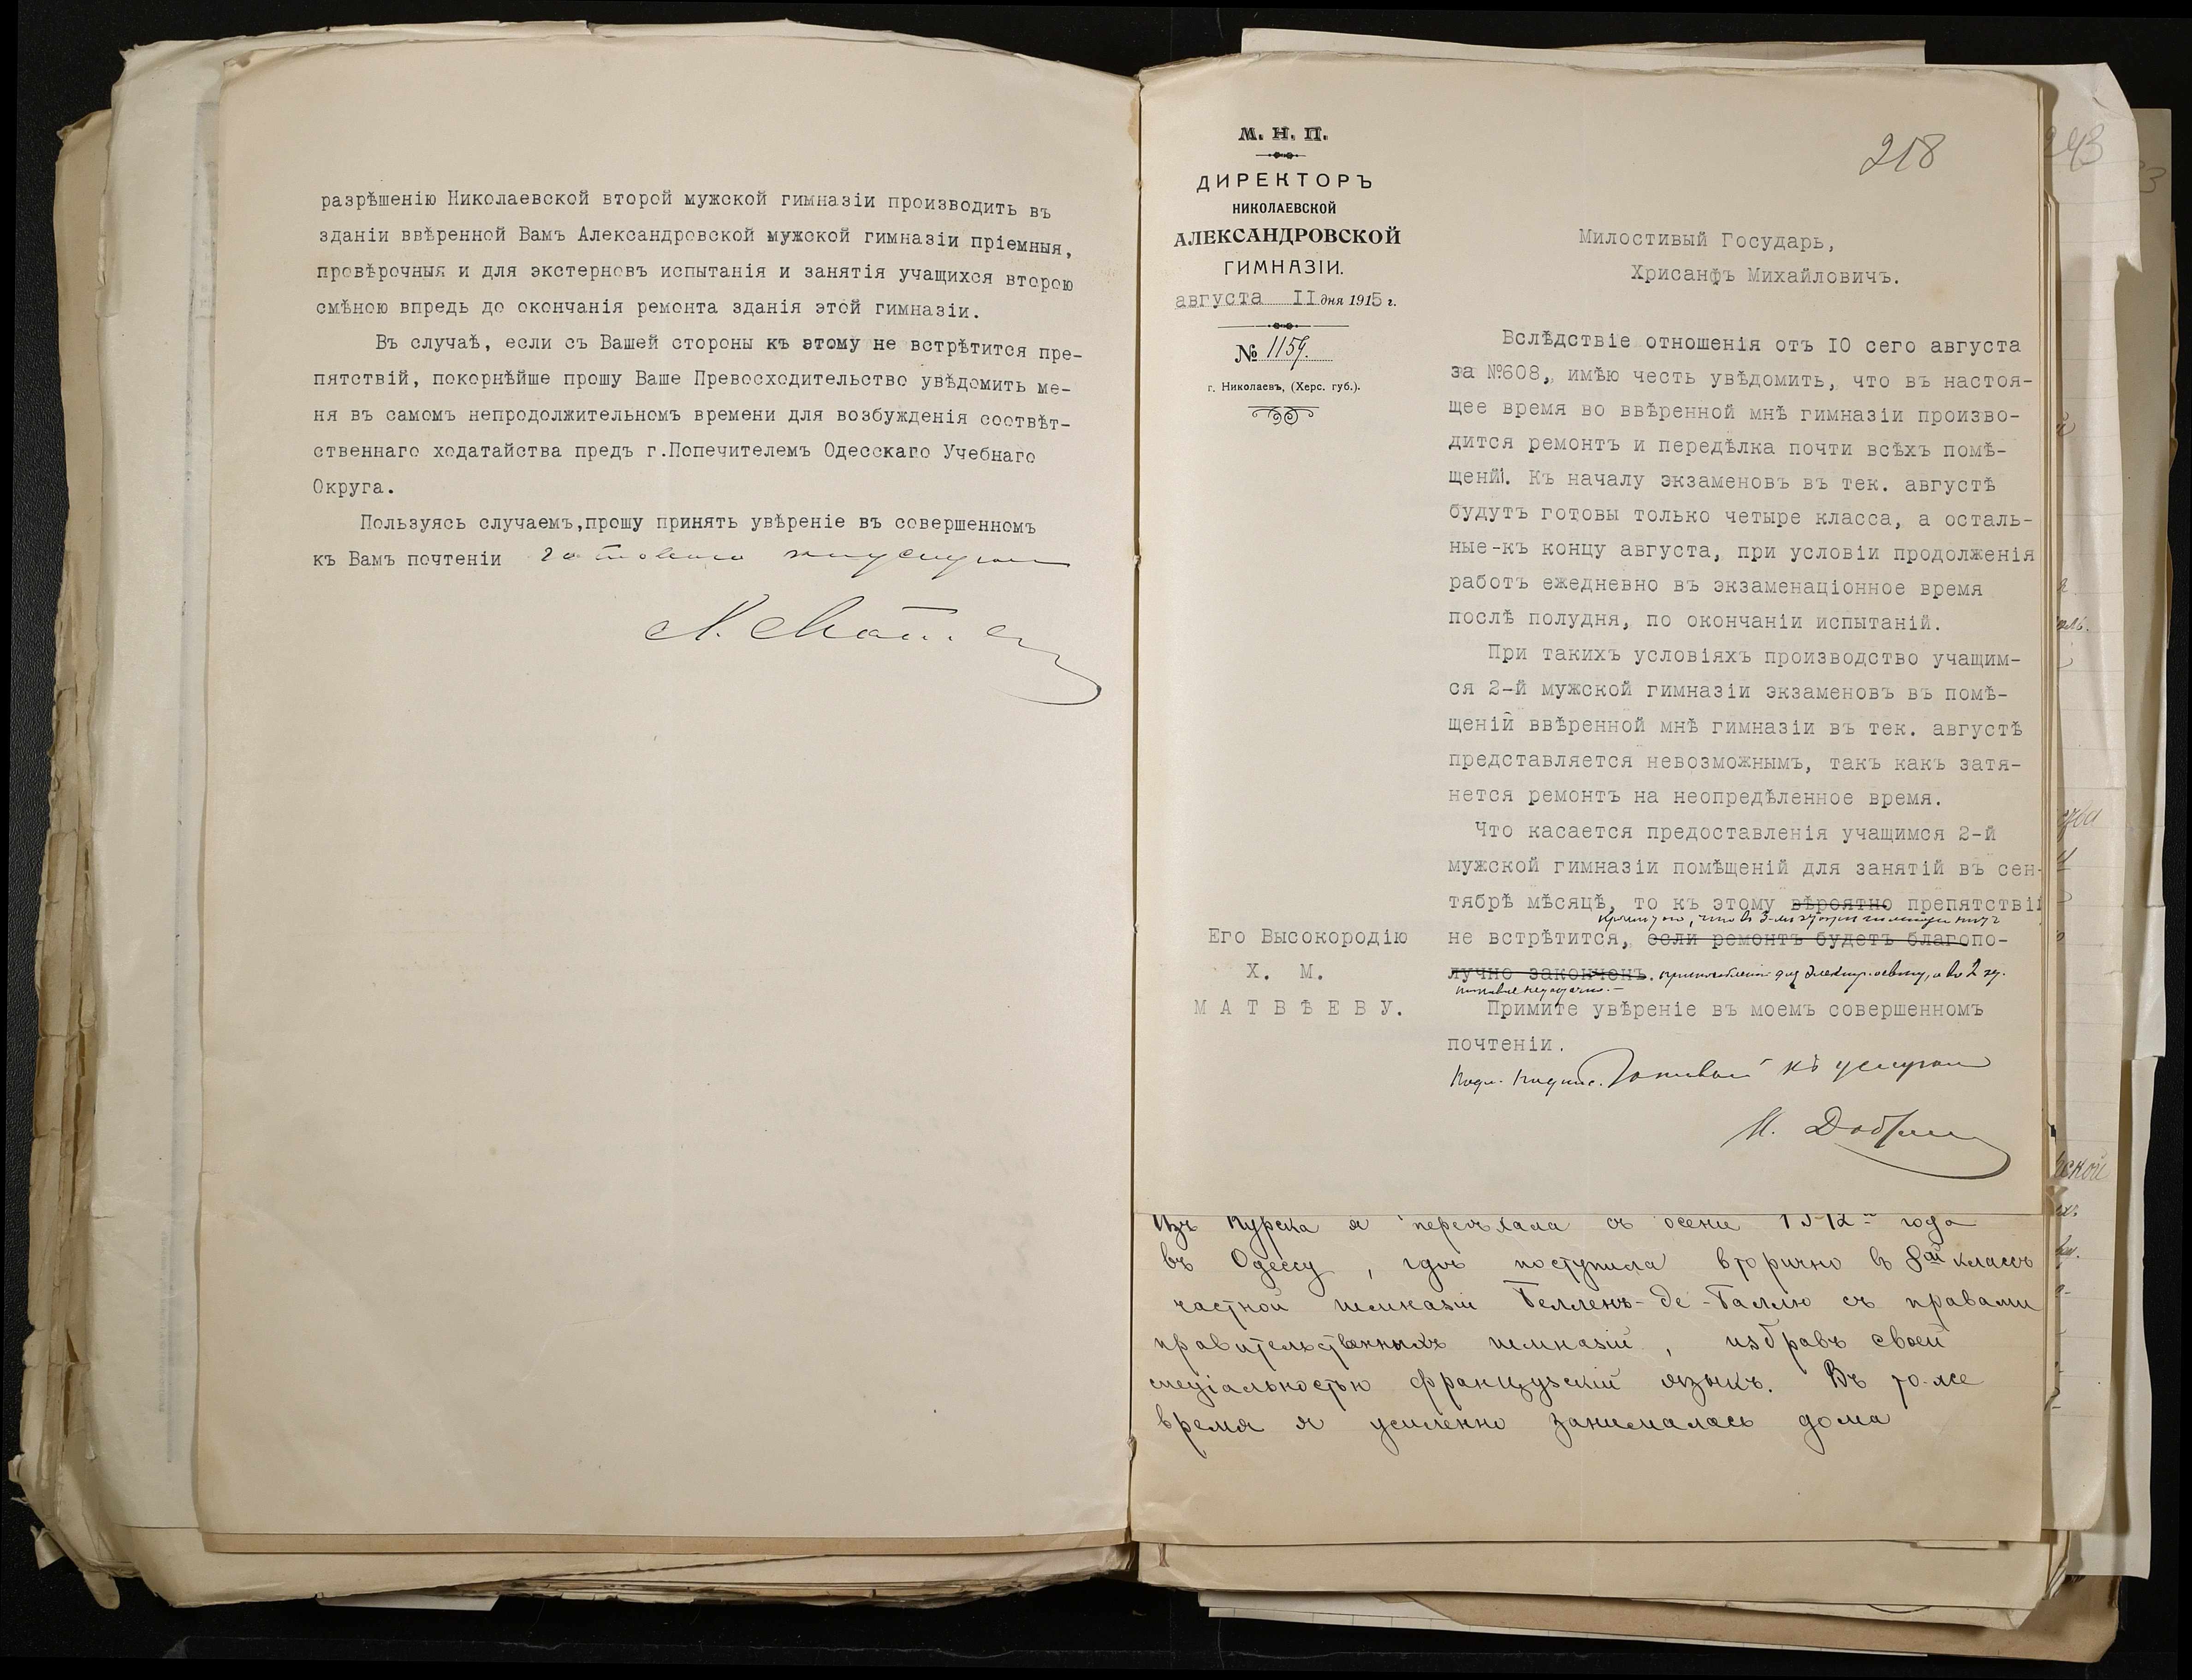 разрѣшенію Николаевской второй мужской гимназіи производить въ
зданіи ввѣренной Вамъ Александровской мужской гимназіи пріемныя,
провѣрочныя и для экстерновъ испытанія и занятія учащихся второю
смѣною впредь до окончанія ремонта зданія этой гимназіи.
Въ случаѣ, если съ Вашей стороны къ этому не встрѣтится пре-
пятствій, покорнѣйше прошу Ваше Превосходительство увѣдомить ме-
ня въ самомъ непродолжительномъ времени для возбужденія соотвѣт-
ственнаго ходатайства предъ г.Попечителемъ Одесскаго Учебнаго
Округа.
Пользуясь случаемъ,прошу принять увѣреніе въ совершенномъ
къ Вамъ почтеніи
М. Н. П.
ДИРЕКТОРЪ
НИКОЛАЕВСКОЙ
АЛЕКСАНДРОВСКОЙ
ГИМНАЗІИ.
августа II дня 1915 г.
№ 1159.
г. Николаевъ, (Херс. губ.).
218
243
Милостивый Государь,
Хрисанфъ Михайловичъ.
Вслѣдствіе отношенія отъ IO сего августа
за №608, имѣю честь увѣдомить, что въ настоя-
щее время во ввѣренной мнѣ гимназіи произво-
дится ремонтъ и передѣлка почти всѣхъ помѣ-
щеній. Къ началу экзаменовъ въ тек. августѣ
будутъ готовы только четыре класса, а осталь-
ные-къ концу августа, при условіи продолженія
работъ ежедневно въ экзаменаціонное время
послѣ полудня, по окончаніи испытаній.
При такихъ условіяхъ производство учащим-
ся 2-й мужской гимназіи экзаменовъ въ помѣ-
щеній ввѣренной мнѣ гимназіи въ тек. августѣ
представляется невозможнымъ, такъ какъ затя-
нется ремонтъ на неопредѣленное время.
Что касается предоставленія учащимся 2-й
мужской гимназіи помѣщеній для занятій въ сен-
тябрѣ мѣсяцѣ, то къ этому вѣроятно препятствій
не встрѣтится, если ремонтъ будетъ благопо-
лучно законченъ.
Его Высокородію
Х. М.
МАТВѢЕВУ.
Примите увѣреніе въ моемъ совершенномъ
почтеніи.
Готовый къ услугамъ
Изъ Курска я переѣхала съ осени 1912 года
въ Одессу, гдѣ поступила вторично въ 8ой классъ
частной гимназіи Беллень-де-Баллю съ правами
правительственныхъ гимназій, избравъ своей
спеціальностью французскій языкъ. Въ то-же
время я усиленно занималась дома